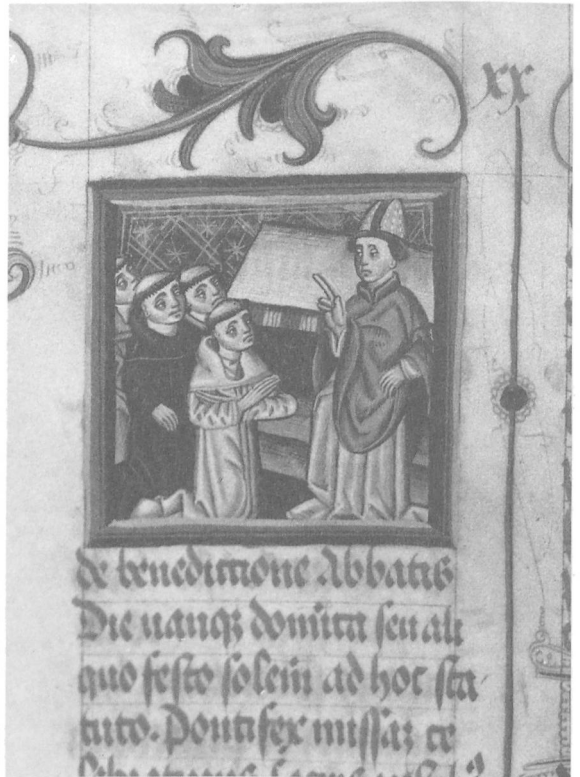 xx
de benedictione Abbatis
Die namq; domica seu ali
quo festo solem ad hoc sta
tuto. Pontifex missaz ce